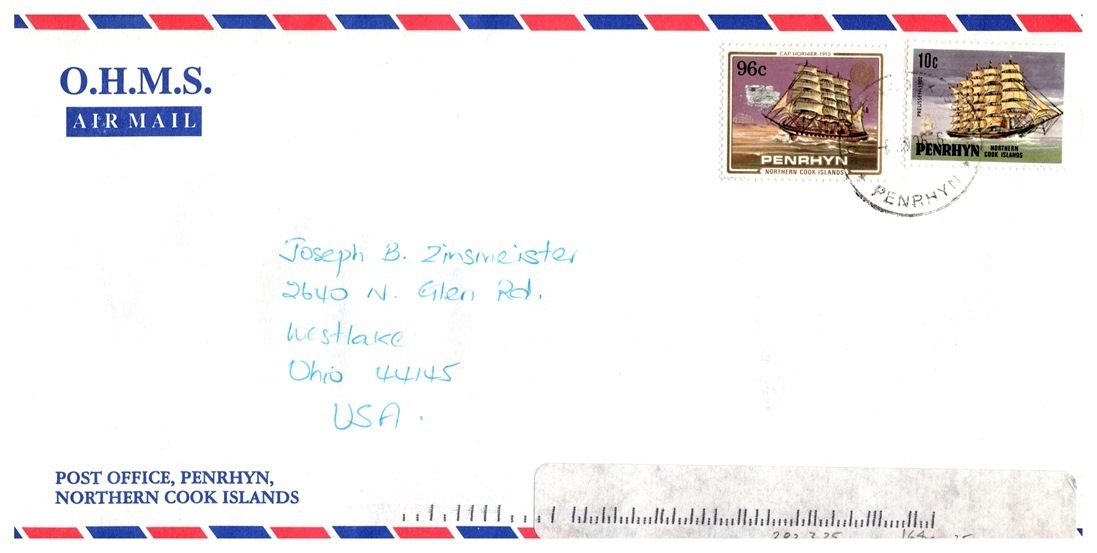 O.H.M.S.
AIR MAIL
CAP HORNIER-1910
96c
PENRHYN
NORTHERN COOK ISLANDS
10c
PREUSSEN-1902
PENRHYN NORTHERN
COOK ISLANDS
PENRHYN
Joseph B. Zinsmeister
2640 N. Glen Rd.
Westlake
Ohio 44145
USA.
POST OFFICE, PENRHYN,
NORTHERN COOK ISLANDS